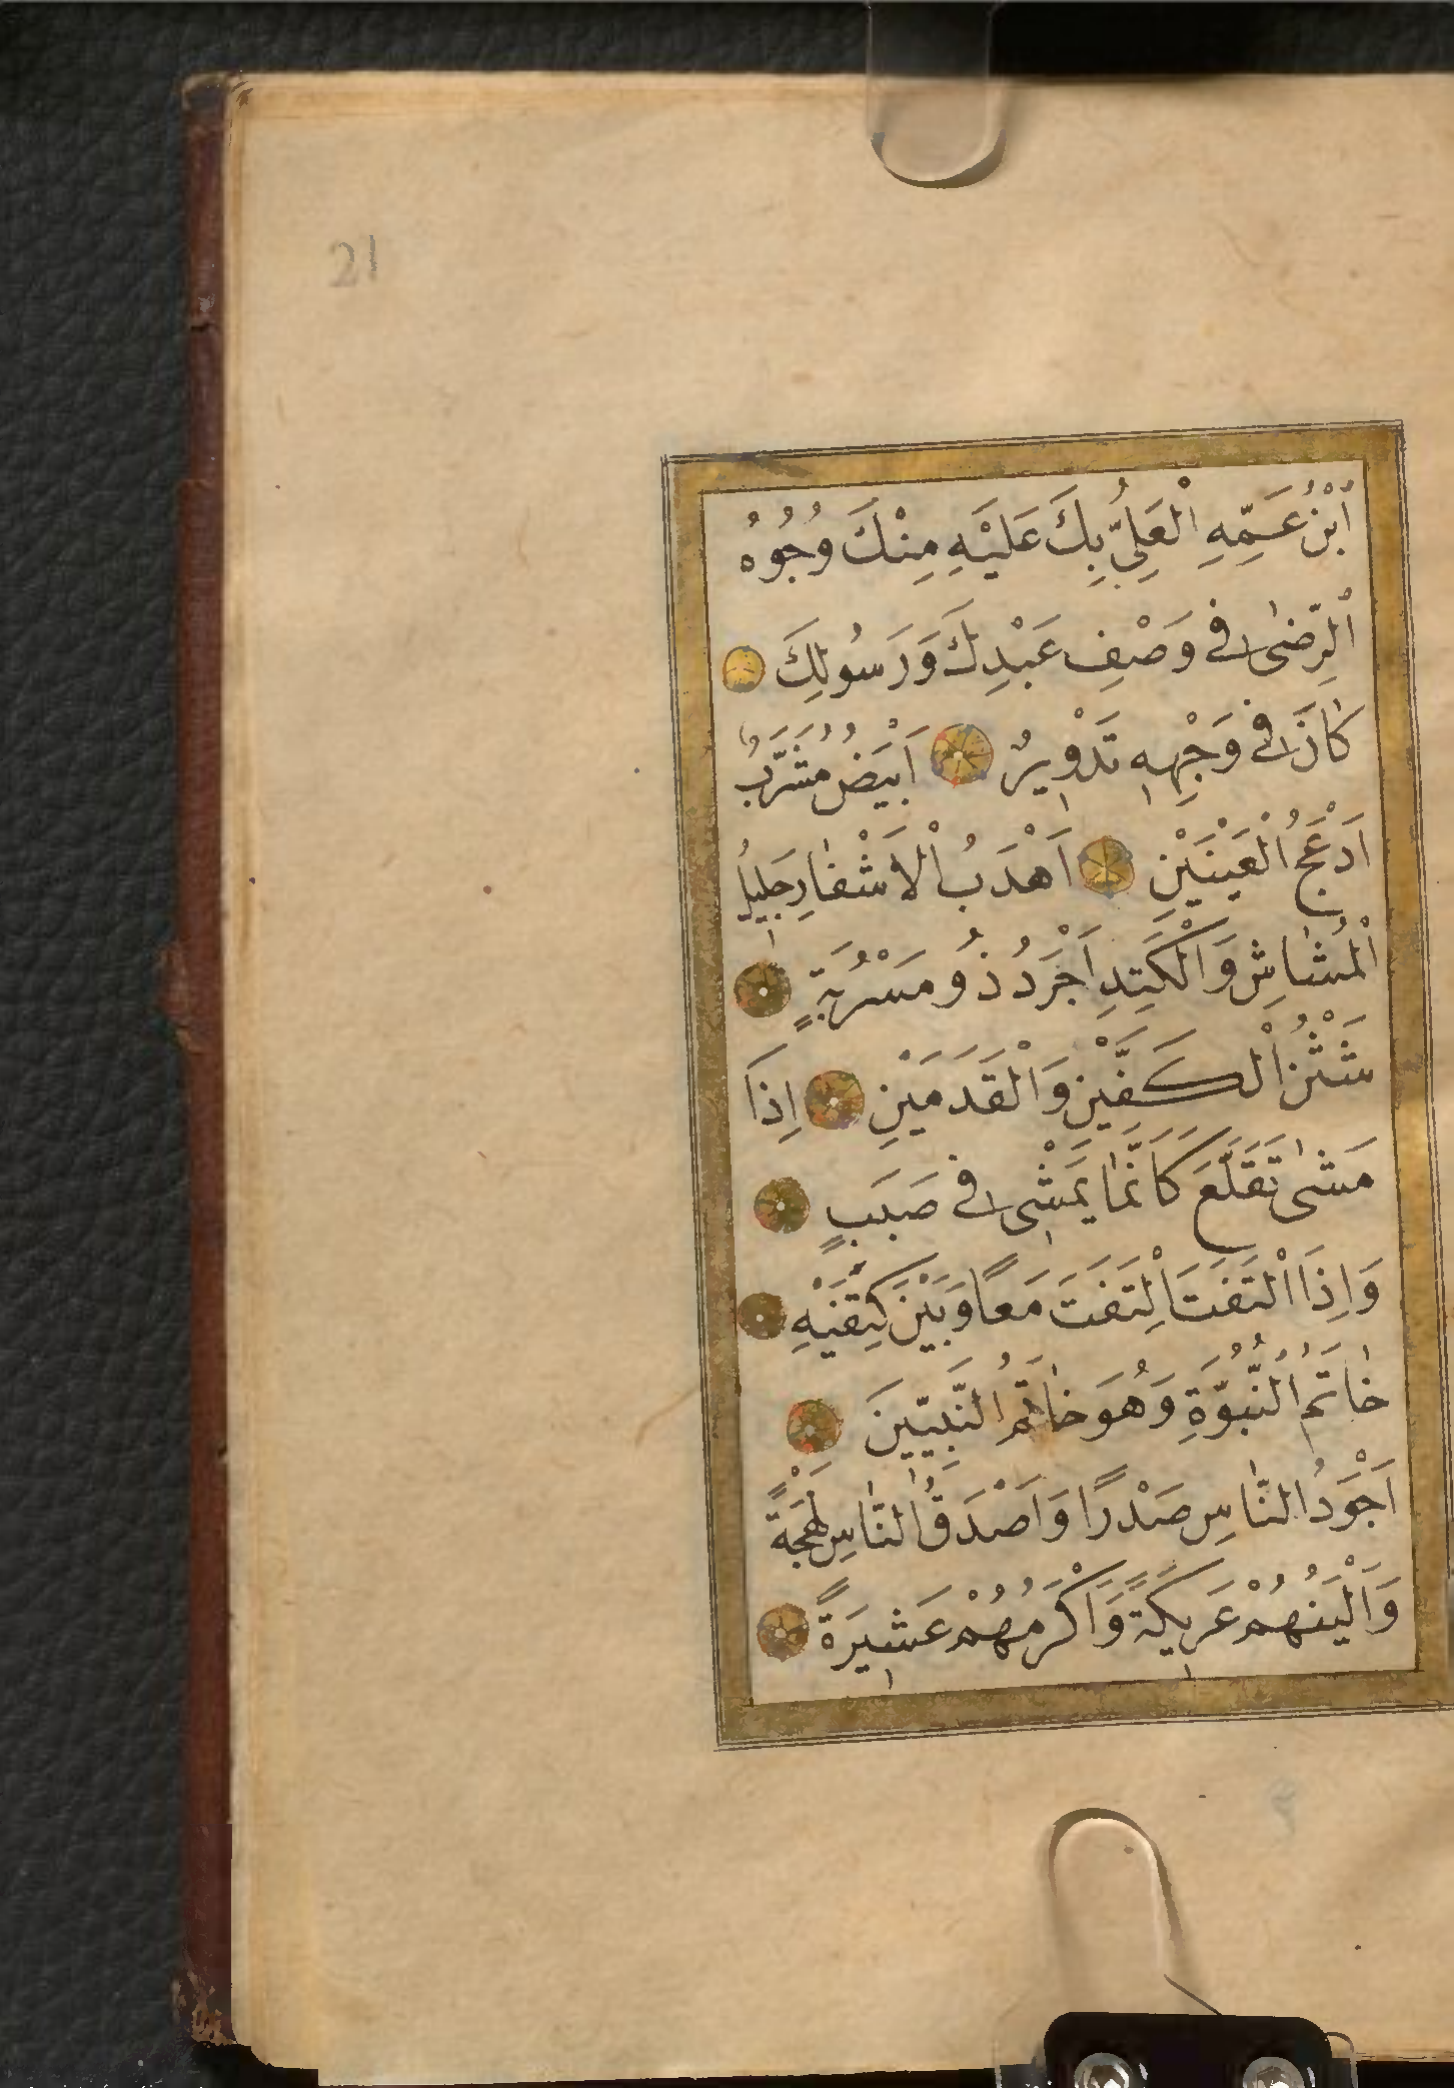 21
اَبْنُ عَمِّهِ الْعَلِيُّ بِكَ عَلَيْهِ مِنْكَ وُجُوهُ
الرِّضٰى فِى وَصْفِ عَبْدِكَ وَرَسُولِكَ
كَانَ فِى وَجْهِهِ تَدْوِيرٌ اَبْيَضُ مُشَرَّبٌ
اَدْعَجُ الْعَيْنَيْنِ اَهْدَبُ الْاَشْفَارِ جَلِيلُ
الْمُشَاشِ وَالْكَتِدِ اَجْرَدُ ذُو مَسْرُبَةٍ
شَثْنُ الْكَفَّيْنِ وَالْقَدَمَيْنِ اِذَا
مَشٰى تَقَلَّعَ كَاَنَّمَا يَمْشِى فِى صَبَبٍ
وَاِذَا الْتَفَتَ اِلْتَفَتَ مَعًا وَبَيْنَ كَتِفَيْهِ
خَاتَمُ النُّبُوَّةِ وَهُوَ خَاتَمُ النَّبِيّينَ
اَجْوَدُ النَّاسِ صَدْرًا وَاَصْدَقُ النَّاسِ لَهْجَةً
وَاَلْيَنُهُمْ عَرِيكَةً وَاَكْرَمُهُمْ عَشِيرَةً